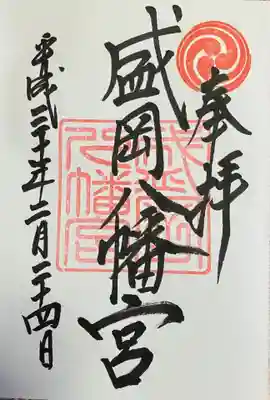 奉拝
盛岡八幡宮
平成三十年十二月二十四日
盛岡八幡宮